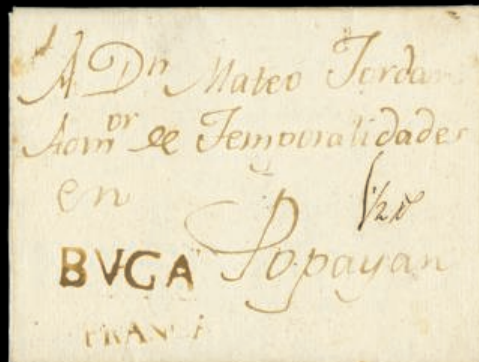 A Dn Mateo Jordan
Admor de Temporalidades
en
Popayan
BVGA
FRANCA